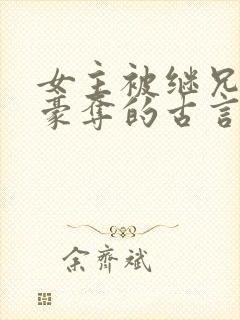 女主被继兄
豪夺的古言
余齐斌